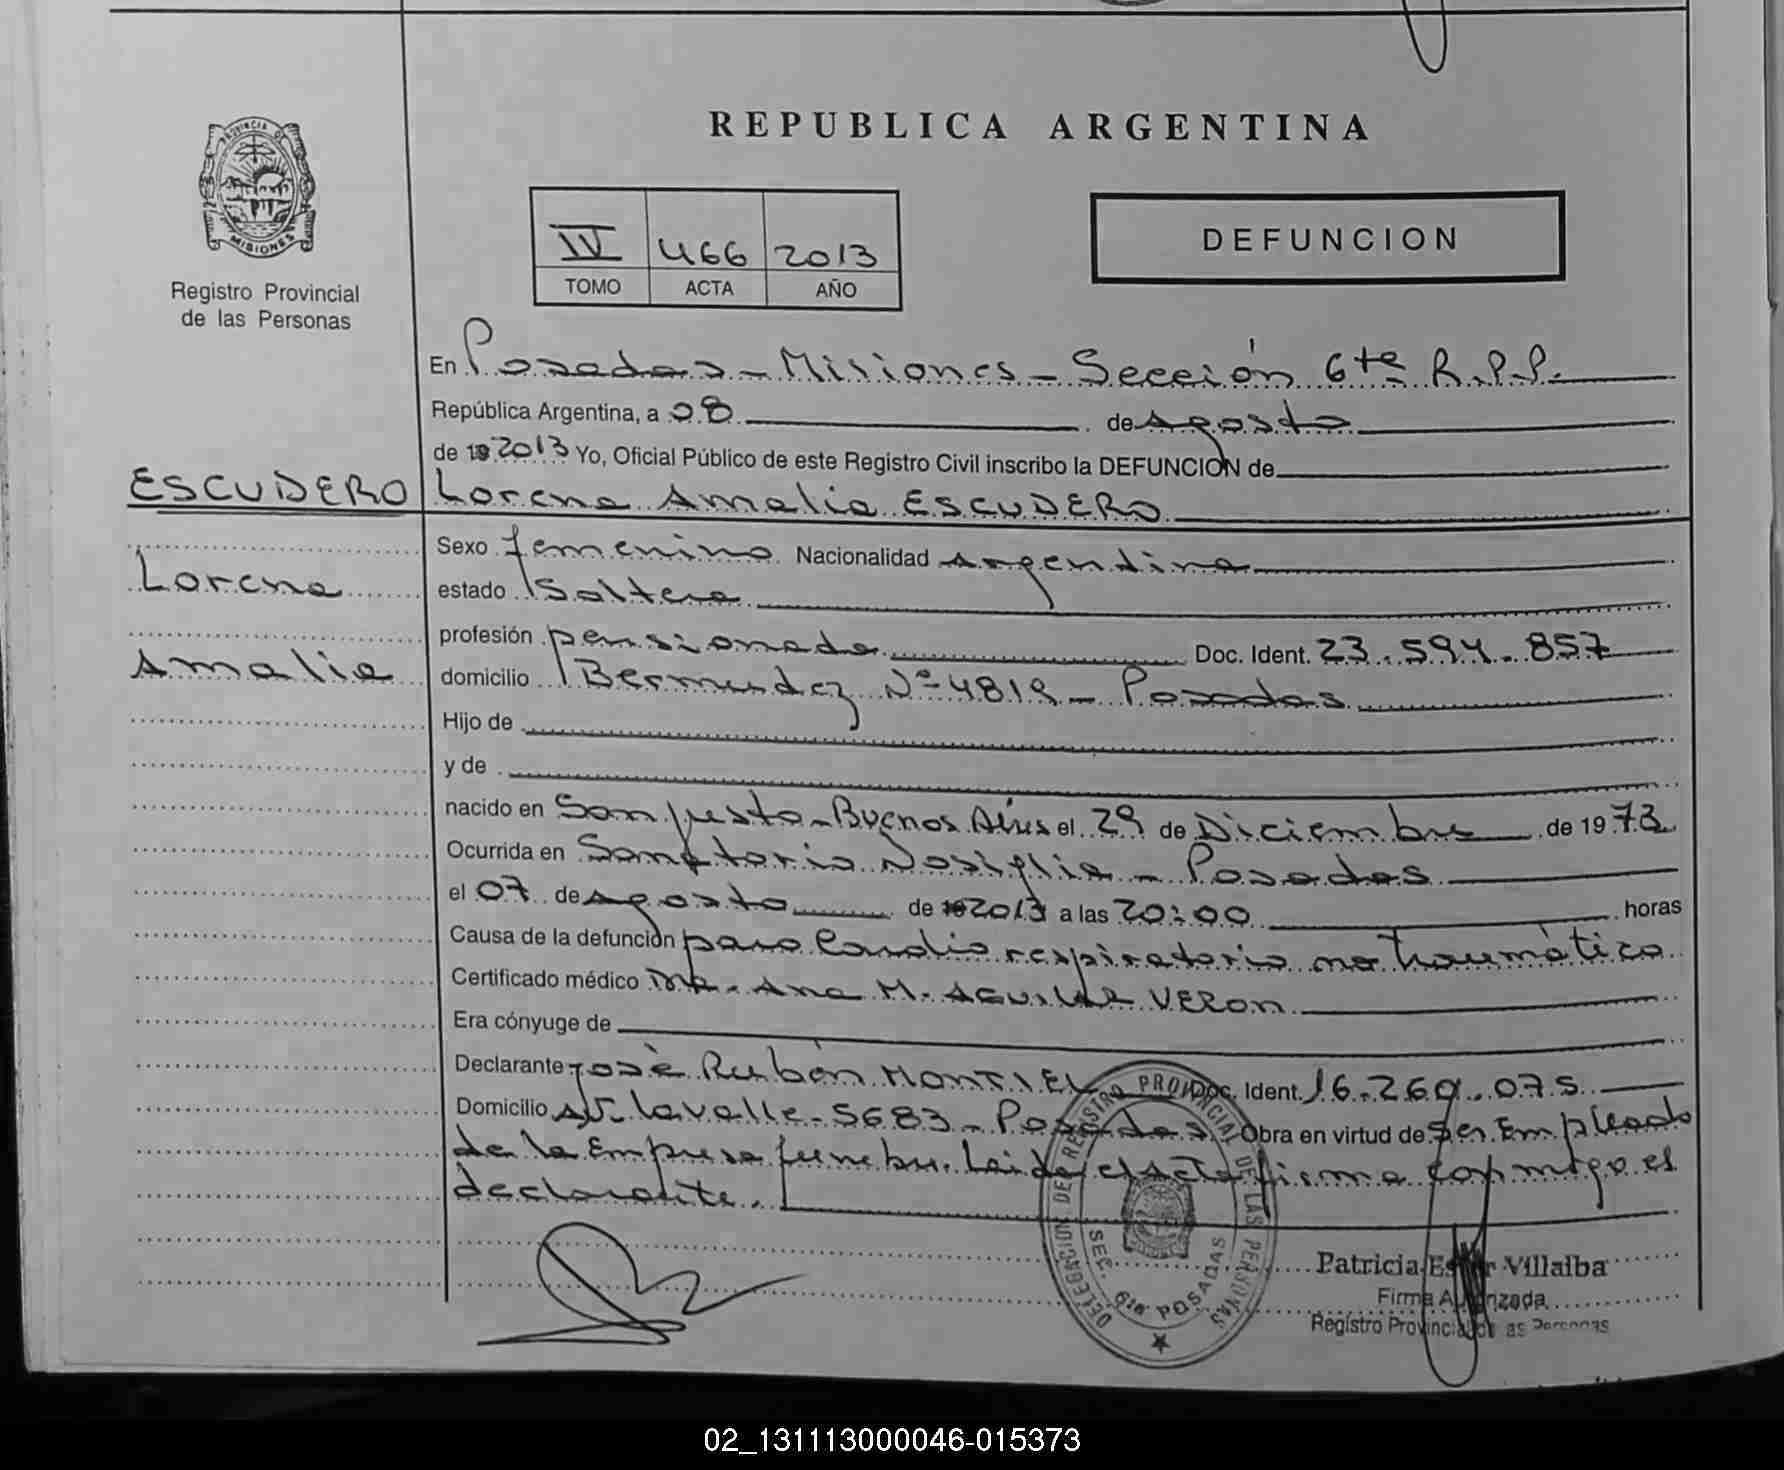 REPUBLICA ARGENTINA
PROVINCIA DE
MISIONES
Registro Provincial
de las Personas
IV 466 2013
TOMO ACTA AÑO
DEFUNCION
En Posadas - Misiones - Sección 6te R.P.P.
República Argentina, a 08 de Agosto
de 19 2013 Yo, Oficial Público de este Registro Civil inscribo la DEFUNCION de
ESCUDERO Lorena Amalia ESCUDERO
Sexo femenino Nacionalidad Argentina
Lorena
estado Soltera
profesión pensionada Doc. Ident. 23.594.857
Amalia
domicilio Bermudez Nº 4819 - Posadas
Hijo de
y de
nacido en San Justo - Buenos Aires el 29 de Diciembre de 1973
Ocurrida en Sanatorio Nosiglia - Posadas
el 07 de Agosto de 19 2013 a las 20:00 horas
Causa de la defunción paro Cardio respiratorio no traumático
Certificado médico Dra. Ana M. AGUILAR VERON
Era cónyuge de
Declarante José Rubén MONTIEL Doc. Ident. 16.269.075
Domicilio Av. Lavalle - 5683 - Posadas Obra en virtud de Ser Empleado
de la Empresa funebre. Leida el Acta firma conmigo el
declarante.
DELEGACION DEL REGISTRO PROVINCIAL DE LAS PERSONAS
SEC. 6ta POSADAS
Patricia Ester Villalba
Firma Autorizada
Registro Provincial de las Personas
02_131113000046-015373